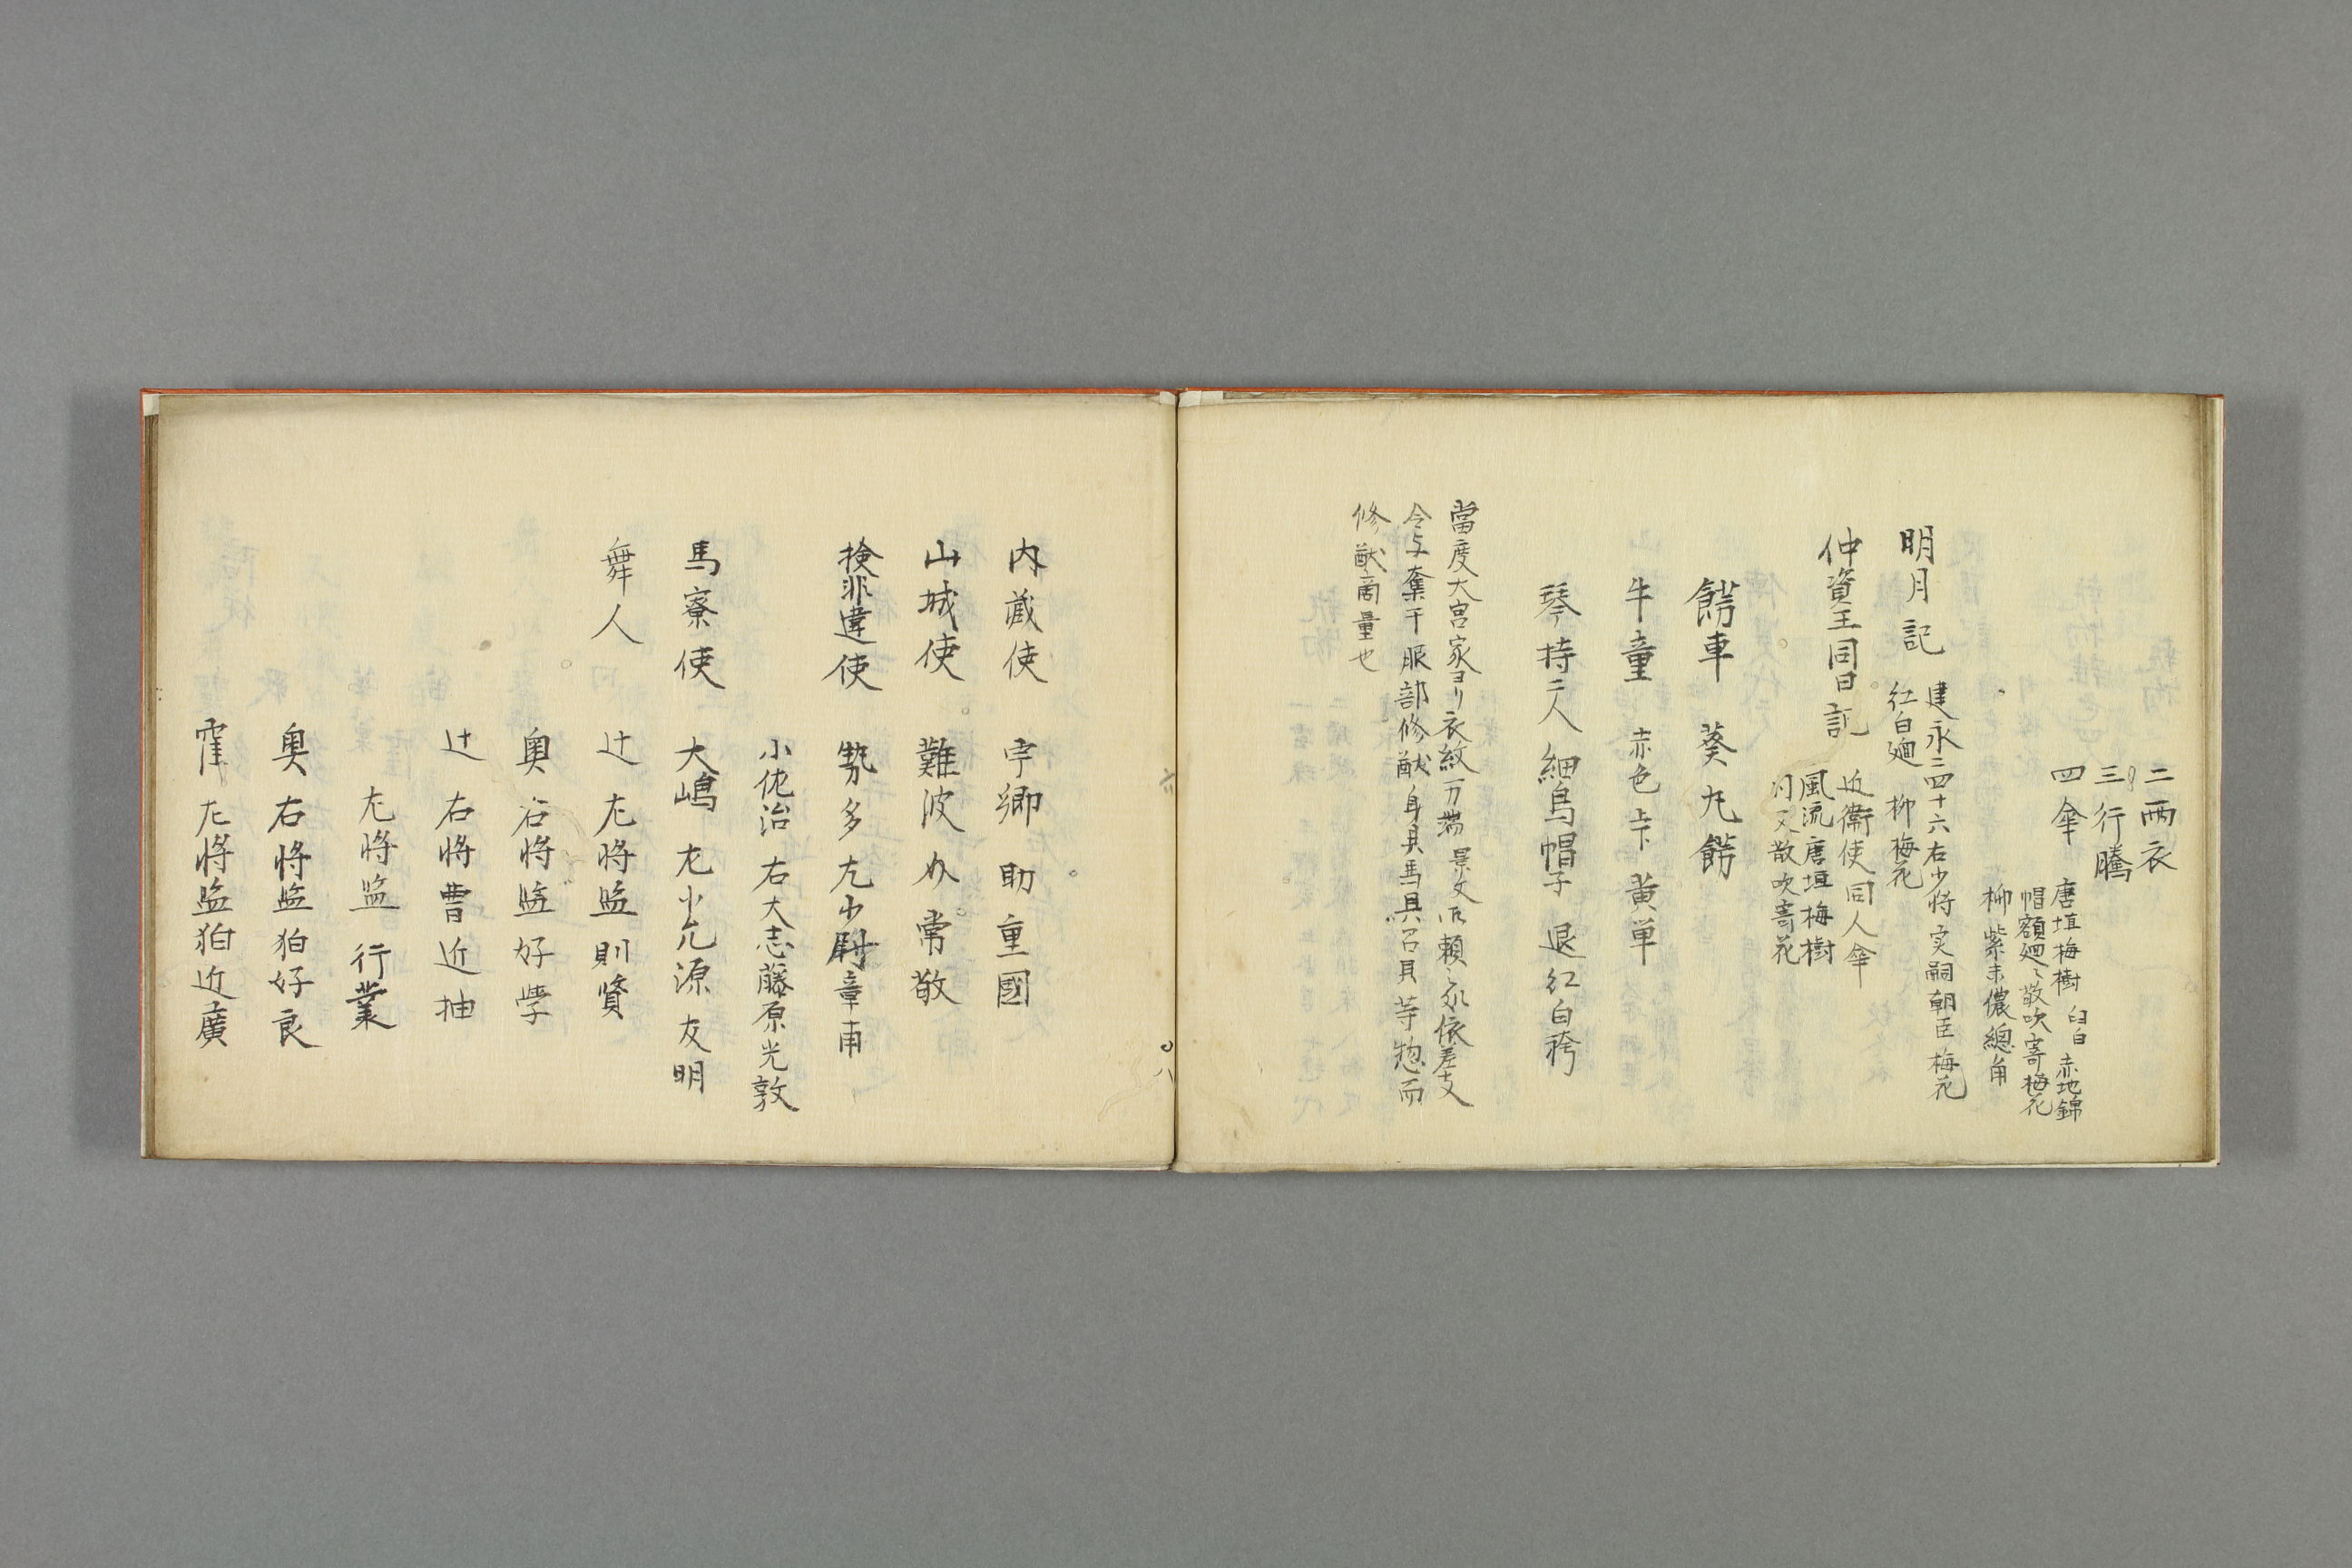 二両衣
三行騰
四傘 唐垣梅樹 臼白 赤地錦
帽額廻ミ敬吹寄梅花
柳 紫末濃総角
明月記 建永二四十六右少将実嗣朝臣梅花
紅白廻 柳 梅花
仲資王同日記 近衛使同人傘
風流唐垣梅樹
又散吹寄花
餝車 葵丸餝
牛童 赤色上下 黄単
琴持二人 細烏帽子 退紅白袴
當度大宮家ヨリ衣紋一万端景文依差支
令与奪于服部修猷身具馬具召具等惣而
修猷商量也
内蔵使 宇郷 助重國
山城使 難波 介常敬
検非違使 勢多 左少尉章甫
小佐治 右大志藤原光敦
馬寮使 大嶋 左少允源友明
舞人 辻 左将監則賢
奥 右将監好學
辻 右将曹近抽
左将監行業
奥 右将監狛好良
窪 左将監狛近廣